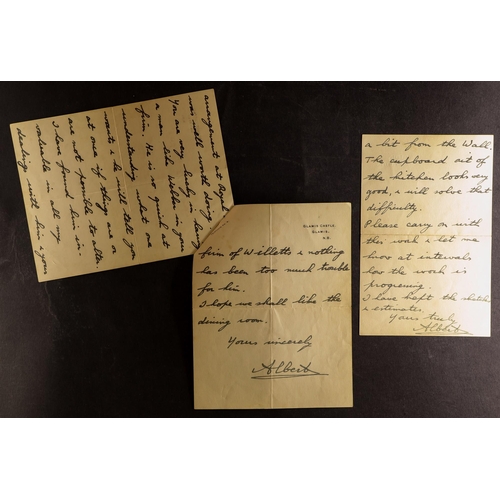 arrangement at Royal
was well worth doing.
You are very lucky in having
a man like Webb in your
firm. He is so quick at
understanding what one
wants & he will tell you
at once if things are or
are not possible to alter.
I have found him in-
valuable in all my
dealing with him your
GLAMIS CASTLE,
GLAMIS,
N.B.
firm of Willetts & nothing
has been too much trouble
for him.
I hope we shall like the
dining room.
Yours sincerely
Albert
a bit from the Wall.
The cupboard out of
the kitchen looks very
good, & will solve that
difficulty.
Please carry on with
this work & let me
know at intervals
how the work is
progressing.
I have kept the sketches
& estimates.
Yours truly
Albert